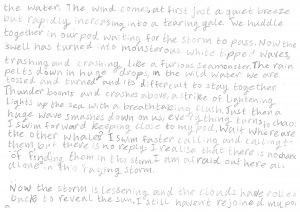 the water. The wind comes, at first just a quiet breeze
but rapidly increasing into a tearing gale. We huddle
together in our pod waiting for the storm to pass. Now the
swell has turned into monsterous white tipped waves,
trashing and crashing like a furious seamonster. The rain
pelts down in huge drops, in the wild water we are
tossed and turned and its difficult to stay together.
Thunder booms and crashes above, a strike of lightening
Lights up the sea with a breathtaking flash. Just then a
huge wave smashes down on us, everything turns to chaos.
I swim forward keeping close to my pod, Wait where are
the other whales. I swim faster calling and calling
them but there is no reply. I realise that there is no chance
of finding them in this storm. I am afraid out here all
alone in this raging storm.
Now the storm is lessening and the clouds have rolled
back to reveal the sun. I still havent rejoined my pod